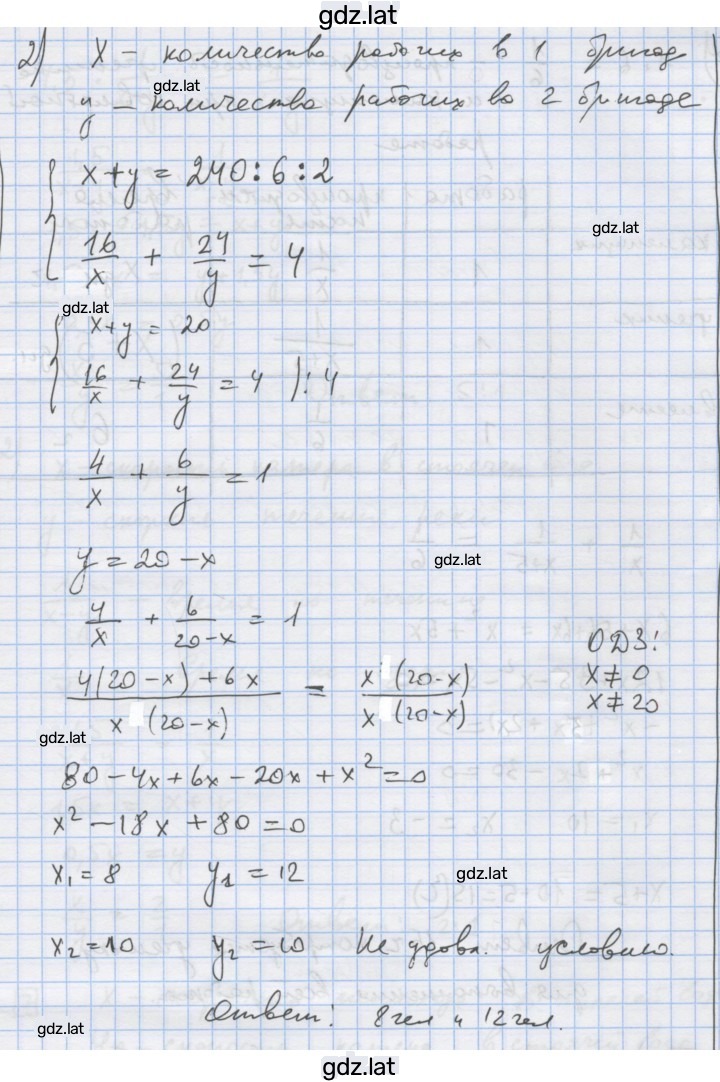 gdz.lat
2) x – количество рабочих в 1 бригад
gdz.lat
y – количество рабочих во 2 бригаде
x+y = 240:6:2
gdz.lat
16/x + 24/y = 4
gdz.lat
x+y = 20
16/x + 24/y = 4 |:4
4/x + 6/y = 1
y = 20-x
gdz.lat
4/x + 6/(20-x) = 1
ОДЗ!
x≠0
x≠20
(4(20-x)+6x)/(x (20-x)) = (x (20-x))/(x (20-x))
gdz.lat
80-4x+6x-20x+x²=0
x²-18x+80=0
x₁=8 y₁=12
gdz.lat
x₂=10 y₂=10 Не удовл. условию.
Ответ: 8чел и 12чел.
gdz.lat
gdz.lat